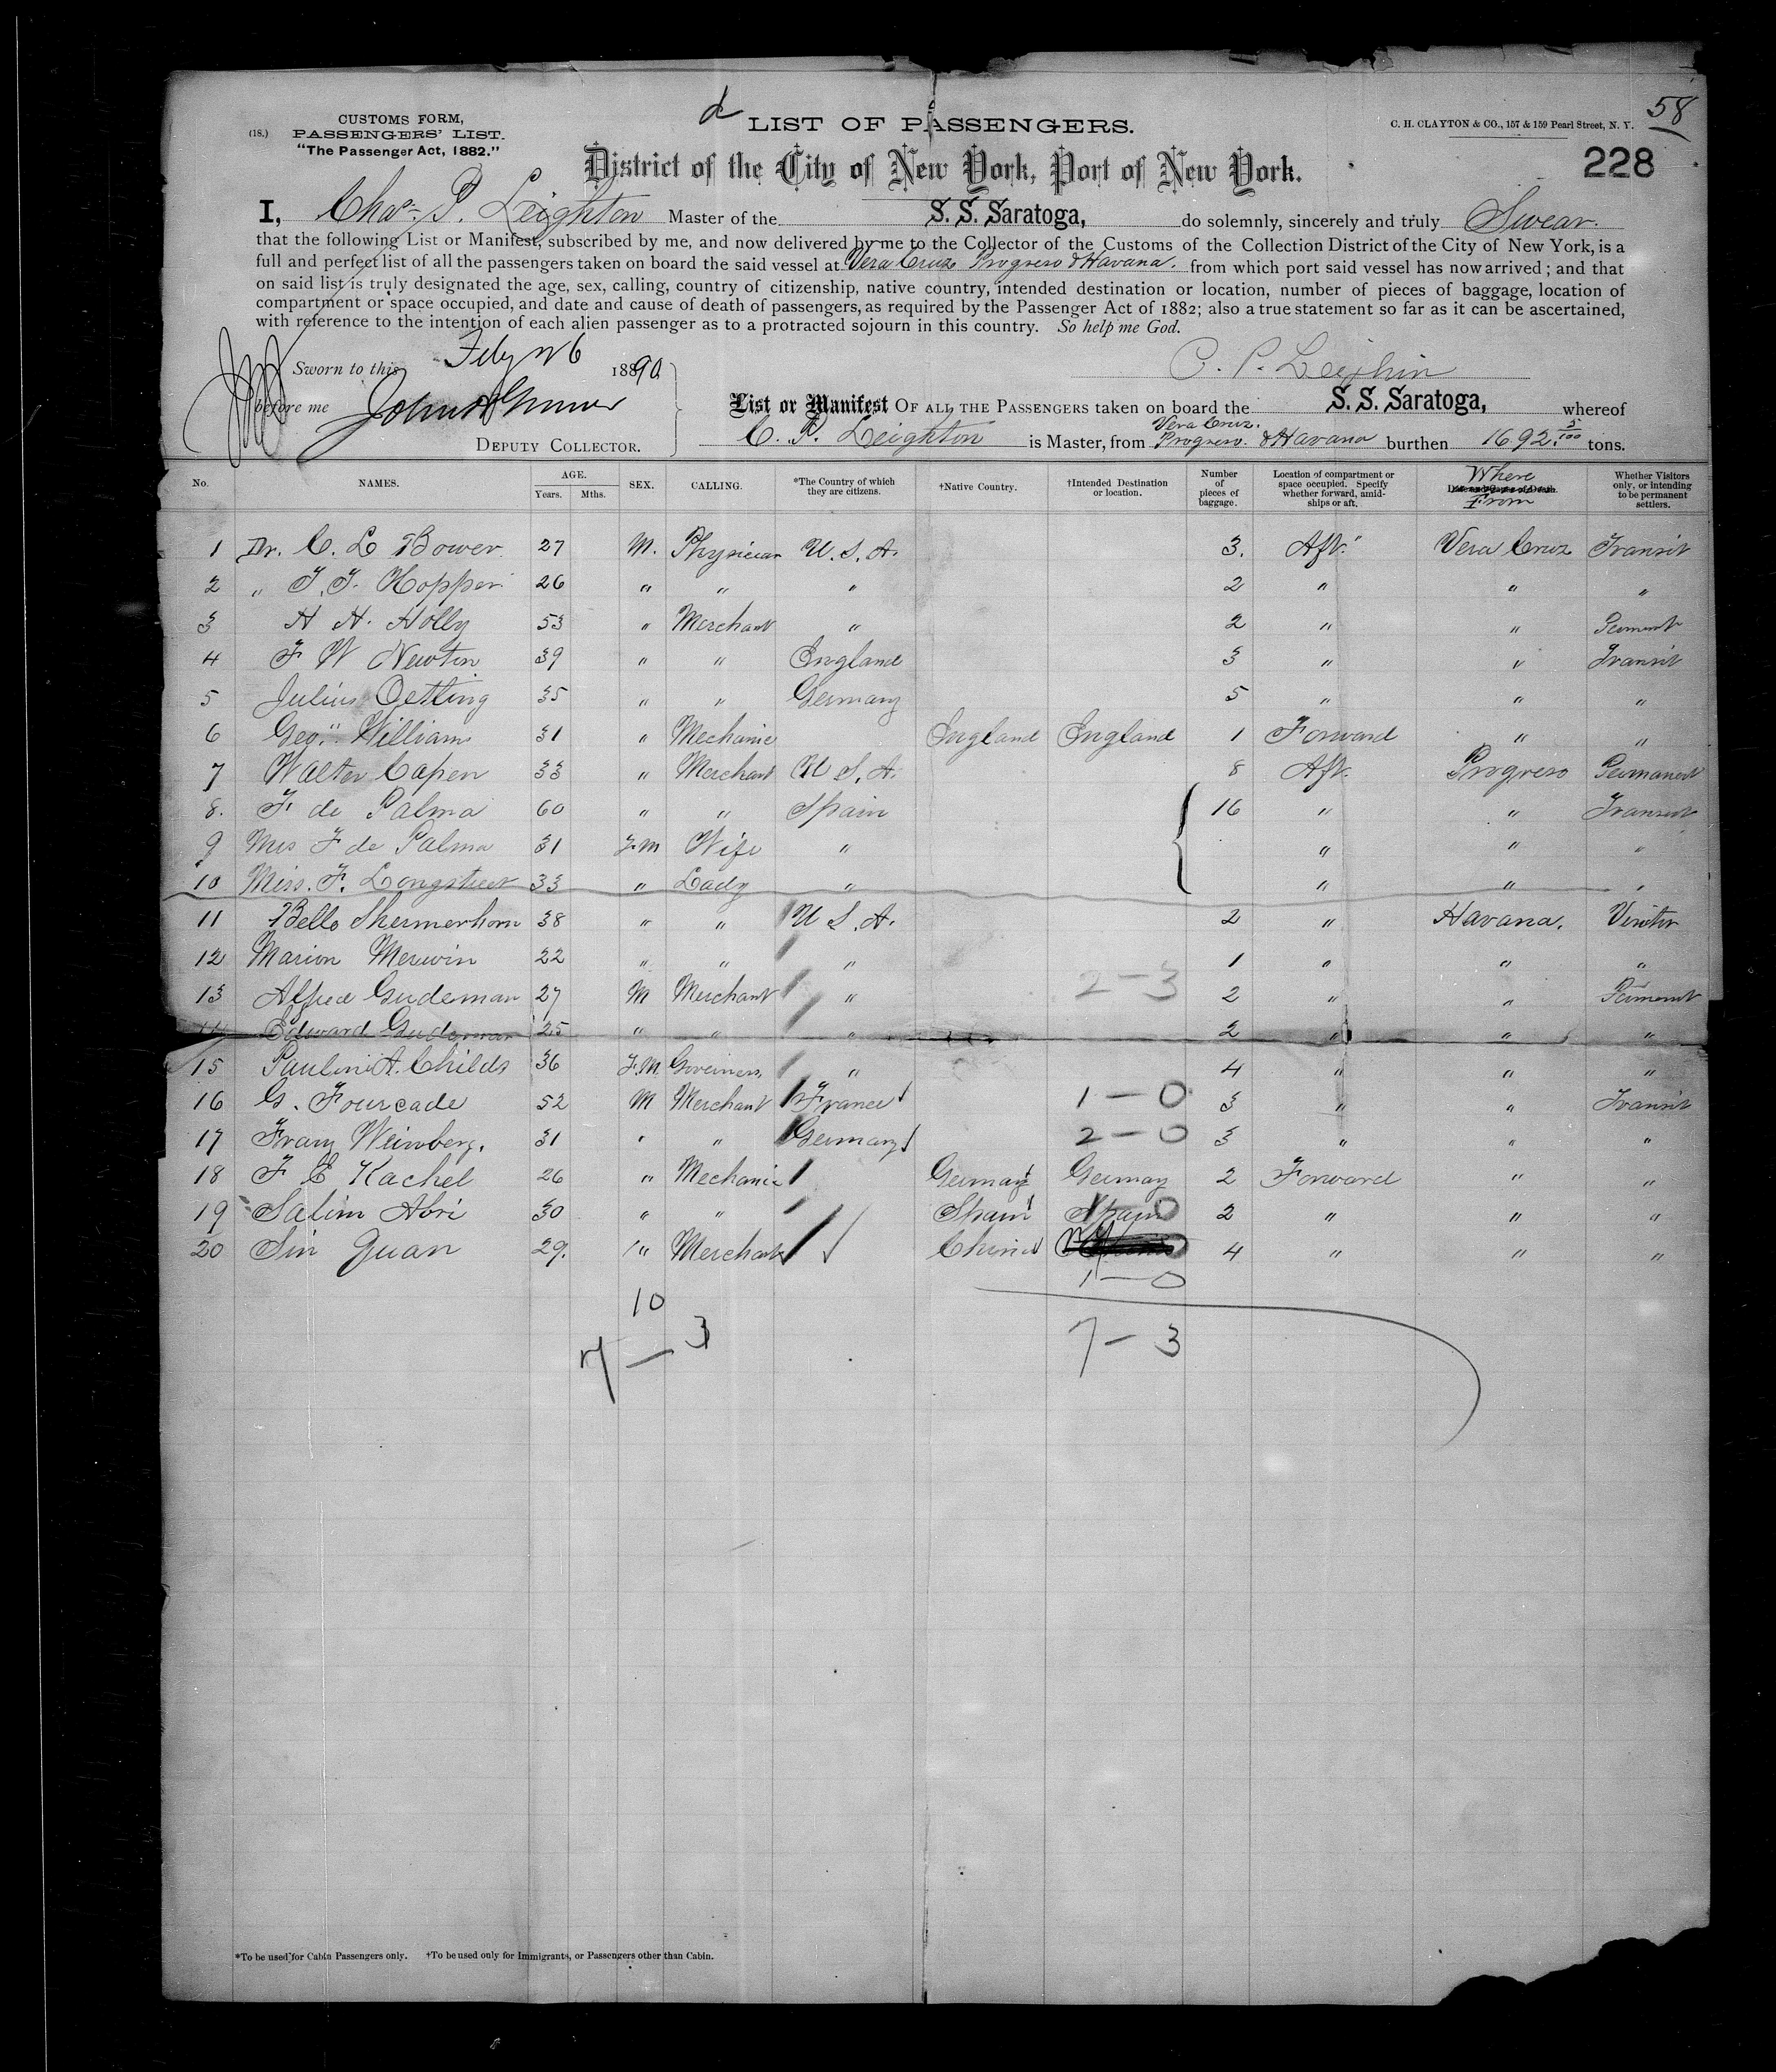 d
58
(18.)
CUSTOMS FORM,
PASSENGERS' LIST.
"The Passenger Act, 1882."
LIST OF PASSENGERS.
C. H. CLAYTON & CO., 157 & 159 Pearl Street, N. Y.
228
District of the City of New York, Port of New York.
I, Chas. P. Leighton Master of the S. S. Saratoga, do solemnly, sincerely and truly Swear.
that the following List or Manifest, subscribed by me, and now delivered by me to the Collector of the Customs of the Collection District of the City of New York, is a
full and perfect list of all the passengers taken on board the said vessel at Vera Cruz Progreso & Havana. from which port said vessel has now arrived; and that
on said list is truly designated the age, sex, calling, country of citizenship, native country, intended destination or location, number of pieces of baggage, location of
compartment or space occupied, and date and cause of death of passengers, as required by the Passenger Act of 1882; also a true statement so far as it can be ascertained,
with reference to the intention of each alien passenger as to a protracted sojourn in this country. So help me God.
Sworn to this Feby 26 1890
before me
DEPUTY COLLECTOR.
List or Manifest OF ALL THE PASSENGERS taken on board the S. S. Saratoga, whereof
C. P. Leighton is Master, from Vera Cruz. Progreso. & Havana burthen 1692. 5/100 tons.
No. NAMES. AGE. Years. Mths. SEX. CALLING. *The Country of which they are citizens. †Native Country. †Intended Destination or location. Number of pieces of baggage. Location of compartment or space occupied. Specify whether forward, amidships or aft. Date and Cause of Death. Where From Whether Visitors only, or intending to be permanent settlers.
1 Dr. C. L Bower 27 M. Physician U. S. A. 3. Aft. Vera Cruz Transit
2 " T. T. Hopper 26 " " " 2 " " "
3 H H. Holly 53 " Merchant " 2 " " Perment
4 F W Newton 39 " " England 3 " " Transit
5 Julius Oetling 35 " " Germany 5 " " "
6 Geo. William 31 " Mechanic England England 1 Forward " "
7 Walter Capen 33 " Merchant U S. A. 8 Aft. Progreso Permanent
8. F. de Palma 60 " " Spain 16 " " Transit
9 Mrs F de Palma 31 F.M Wife " " " "
10 Miss. F. Longstreet 33 " Lady " " " "
11 Bello Shermerhorn 38 " " U S. A. 2 " Havana. Visitor
12 Marion Merwin 22 " " " 1 " " "
13 Alfred Gudeman 27 M Merchant " 2 - 3 2 " " Perment
14 Edward Gudeman 25 " " " 2 " " "
15 Pauline A. Childs 36 F.M Governess " 4 " " "
16 G. Fourcade 52 M Merchant France 1 - 0 3 " " Transit
17 Franz Weinberg. 31 " " Germany 2 - 0 3 " " "
18 F E Kachel 26 " Mechanic Germany Germay 2 Forward " "
19 Salim Abri 30 " " Spain Spain 2 " " "
20 Sin Guan 29. " Merchant China 4 " " "
1 - 0
10
7 - 3
7 - 3
*To be used for Cabin Passengers only. †To be used only for Immigrants, or Passengers other than Cabin.